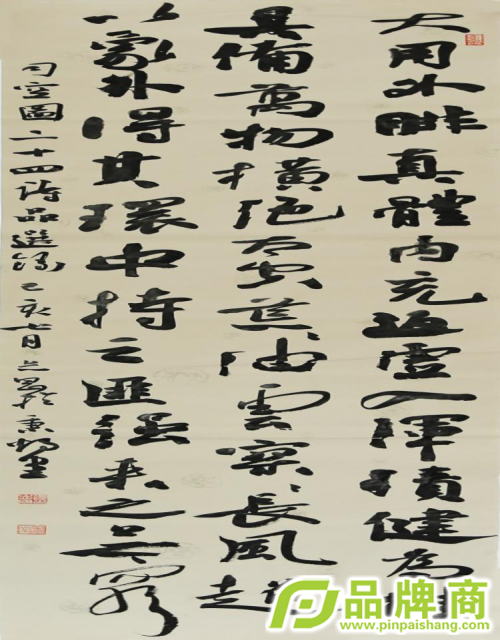 大用外腓真體内充返虛入渾積健為
具備萬物橫絕太空荒々油雲寥々長風超
以象外得其環中持之匪強來之無窮
司空圖二十四詩品選錄己亥七月
品牌商
www.pinpaishang.com